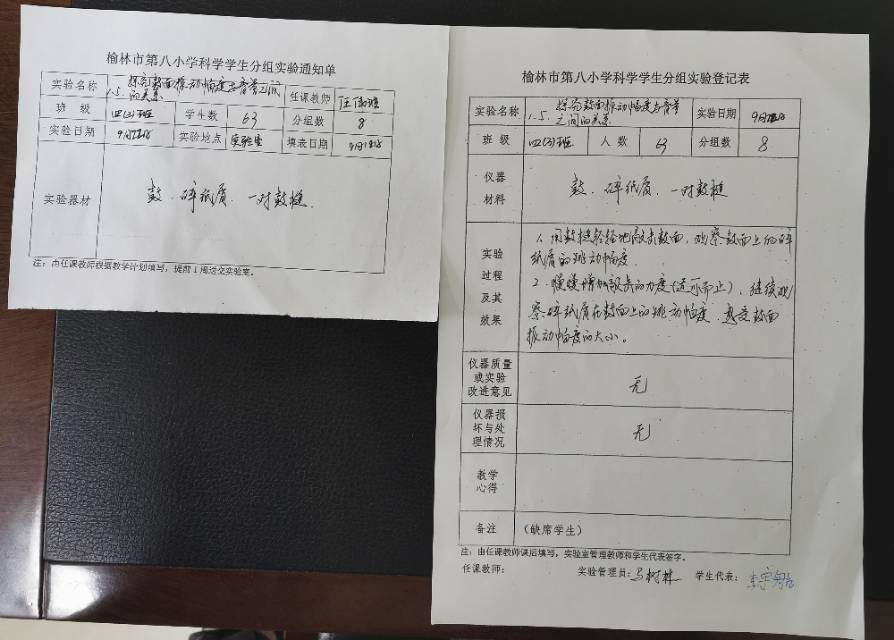 榆林市第八小学科学学生分组实验通知单
实验名称 1.5. 探究鼓面振动幅度与音量之间
的关系 任课教师
班 级 四(3)班 学生数 63 分组数 8
实验日期 实验地点 实验室 填表日期
实验器材 鼓、碎纸屑、一对鼓槌.
注:由任课教师根据教学计划填写,提前1周送交实验室。
榆林市第八小学科学学生分组实验登记表
实验名称 1.5. 探究鼓面振动幅度与音量
之间的关系 实验日期
班 级 四(3)班 人 数 63 分组数 8
仪器
材料 鼓、碎纸屑、一对鼓槌
实验
过程
及其
效果
1、用鼓槌轻轻地敲击鼓面,观察鼓面上的碎
纸屑的跳动幅度.
2.慢慢增加敲击的力度(适可而止)、继续观
察碎纸屑在鼓面上的跳动幅度、感受鼓面
振动幅度的大小。
仪器质量
或实验
改进意见 无
仪器损
坏与处
理情况 无
教学
心得
备注 (缺席学生)
注:由任课教师课后填写,实验室管理教师和学生代表签字。
任课教师: 实验管理员:马树林 学生代表: